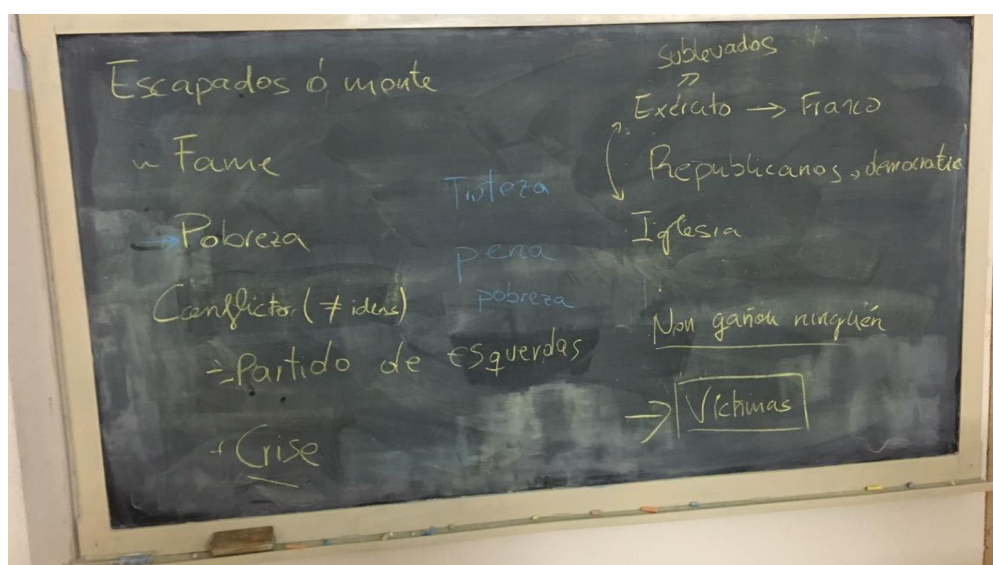 Escapados ó monte
- Fame
→ Pobreza
Conflictos (≠ ideas)
- Partido de esquerdas
+ Crise
Tristeza
pena
pobreza
Sublevados
Exército → Franco
Republicanos, democratia
Iglesia
Non gañou ninguén
→ Víctimas